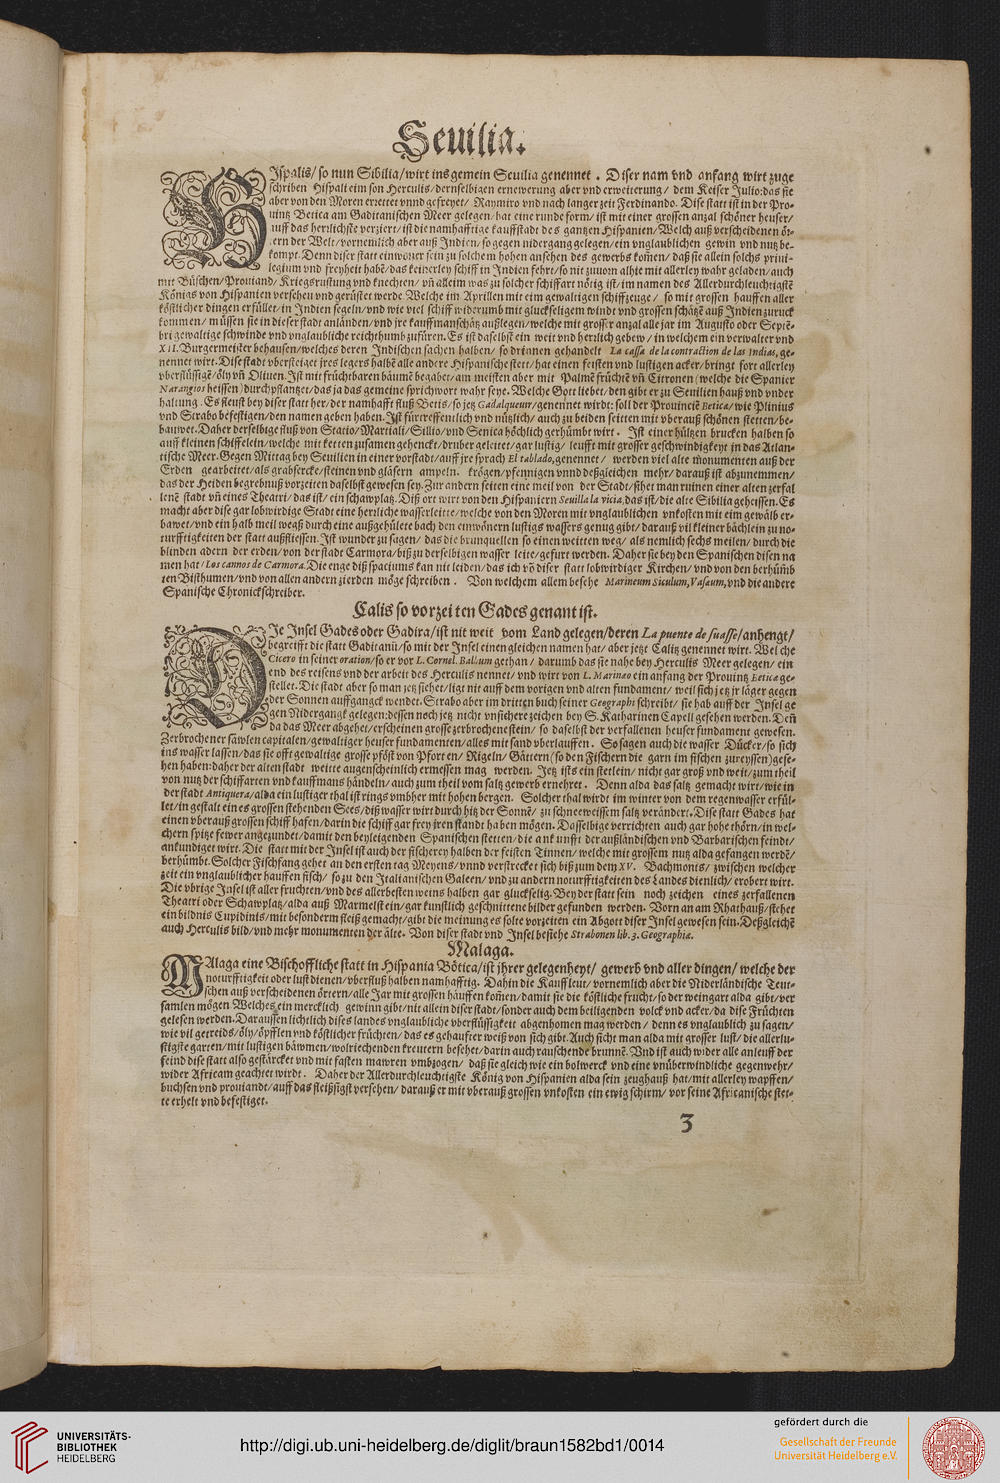 Seuilia.
HIspalis/ so nun Sibilia/ wirt ins gemein Seuilia genennet. Diser nam vnd anfang wirt zuge
schriben Hispali eim son Herculis/ dernselbigen ernewerung aber vnd erweiterung/ dem Keiser Julio: das sie
aber von den Moren erlettet vnnd gefreyet/ Raymiro vnd nach langer zeit Ferdinando. Dise statt ist in der Pro-
uintz Betica am Gaditanischen Meer gelegen/ hat eine runde form/ ist mit einer grossen anzal schöner heuser/
auff das herrlichste verziert/ ist die namhafftige kauffstadt des gantzen Hispanien/ Welch auß verscheidenen ör-
tern der Welt/ vornemlich aber auß Indien/ so gegen nidergang gelegen/ ein vnglaublichen gewin vnd nutz be-
kompt. Denn diser statt einwoner sein zu solchem hohen ansehen des gewerbs kom̃en/ daß sie allein solchs priui-
legium vnd freyheit habẽ/ das keinerley schiff in Indien fehrt/ so nit zuuorn alhie mit allerley wahr geladen/ auch
mit Büschen/ Prouiand/ Kriegsrustung vnd knechten/ vñ alleim was zu solcher schiffart nötig ist/ im namen des Allerdurchleuchtigstẽ
Königs von Hispanien versehen vnd gerüstet werde. Welche im Aprillen mit eim gewaltigen schiffzeuge/ so mit grossen hauffen aller
köstlicher dingen erfüllet/ in Indien segeln/ vnd wie viel schiff widerumb mit gluckseligem windt vnd grossen schätzẽ auß Indien zuruck
kommen/ müssen sie in dieser stadt anländen/ vnd jre kauffmanschätz außlegen/ welche mit grosser anzal alle jar im Augusto oder Septẽ-
bri gewaltige schwinde vnd vnglaubliche reichthumb zufüren. Es ist daselbst ein weit vnd herrlich gebew/ in welchem ein verwalter vnd
XII. Burgermeister behausen/ welches deren Indischen sachen halben/ so drinnen gehandelt La cassa de la contraction de las Indias, ge-
nennet wirt. Dise stadt vbersteiget jres legers halbẽ alle andere Hispanische stett/ hat einen feisten vnd lustigen acker/ bringt fort allerley
vberflüssigẽ/ öly vñ Oliuen. Ist mit früchtbaren bäumẽ begabet/ am meisten aber mit Palmẽ früchtẽ vñ Citronen (welche die Spanier
Narangios heissen) durchpflantzet/ das ja das gemeine sprichwort wahr seye. Welche Gott liebet/ den gibt er zu Seuilien hauß vnd vnder
haltung. Es fleust bey diser statt her/ der namhafft fluß Betis/ so jetz Gadalqueuir/ genennet wirdt: soll der Prouincie Betica/ wie Plinius
vnd Strabo befestigen/ den namen geben haben. Ist fürtreffentlich vnd nützlich/ auch zu beiden seitten mit vberauß schönen stetten/ be-
bauwet. Daher derselbige fluß von Statio/ Martiali/ Sillio/ vnd Seneca höchlich gerhümbt wirt. Ist einer hültzen brucken halben so
auff kleinen schiffelein/ welche mit ketten zusamen gehenckt/ druber geleitet/ gar lustig/ leufft mit grosser geschwindigkeyt in das Atlan-
tische Meer. Gegen Mittag bey Seuilien in einer vorstadt/ auff jre sprach El tablado, genennet/ werden viel alte monumenten auß der
Erden gearbeitet/ als grabsercke/ steinen vnd gläsern ampeln. krögen/ pfennigen vnnd deßgleichen mehr/ darauß ist abzunemmen/
das der Heiden begrebnuß vorzeiten daselbst gewesen sey. Zur andern seiten eine meil von der Stadt/ sihet man ruinen einer alten zerfal
lenẽ stadt vñ eines Theatri/ das ist/ ein schawplatz. Diß ort wirt von den Hispaniern Seuilla la vicia, das ist/ die alte Sibilia geheissen. Es
macht aber dise gar lobwirdige Stadt eine herrliche wasserleitte/ welche von den Moren mit vnglaublichen vnkosten mit eim gewälb er-
bawet/ vnd ein halb meil wegs durch eine außgehülete bach den einwönern lustigs wassers genug gibt/ darauß vil kleiner bächlein zu no-
turfftigkeiten der statt außfliessen. Ist wunder zu sagen/ das die brunquellen so einen weitten weg/ als nemlich sechs meilen/ durch die
blinden adern der erden/ von der stadt Carmora/ biß zu derselbigen wasser leite/ gefurt werden. Daher sie bey den Spanischen disen na
men hat/ Los cannos de Carmora. Die enge diß spaciums kan nit leiden/ das ich võ diser statt lobwirdiger Kirchen/ vnd von den berhümb
ten Bisthumen/ vnd von allen andern zierden möge schreiben. Von welchem allem besehe Marineum Siculum, Vasæum, vnd die andere
Spanische Chronickschreiber.
Calis so vorzeiten Gades genant ist.
DIe Insel Gades oder Gadira/ ist nit weit vom Land gelegen/ deren La puente de suasse/ anhengt/
begreifft die statt Gaditanũ/ so mit der Insel einen gleichen namen hat/ aber jetzt Calitz genennet wirt. Welche
Cicero in seiner oration/ so er vor L. Cornel. Balbum gethan/ darumb das sie nahe bey Herculis Meer gelegen/ ein
end des reisens vnd der arbeit des Herculis nennet/ vnd wirt von L. Marinæo ein anfang der Prouintz Betica ge-
stellet. Die stadt aber so man jetz siehet/ ligt nit auff dem vorigen vnd alten fundament/ weil sich jetz jr läger gegen
der Sonnen auffgangck wendet. Strabo aber im dritten buch seiner Geographi schreibt/ sie hab auff der Insel ge
gen Nidergangk gelegen: dessen noch jetz nicht vnsichere zeichen bey S. Katharinen Capell gesehen werden. Deñ
da das Meer abgehet/ erscheinen grosse zerbrochene stein/ so daselbst der verfallenen heuser fundament gewesen.
Zerbrochener säwlen capitalen/ gewaltiger heuser fundamenten/ alles mit sand vberlauffen. So sagen auch die wasser Dücker/ so sich
ins wasser lassen/ das sie offt gewaltige grosse pföst von Pforten/ Rigeln/ Gättern (so den Fischern die garn im fischen zureyssen) gese-
hen haben: daher der alten stadt weitte augenscheinlich ermessen mag werden. Jetz ists ein stetlein/ nicht gar groß vnd weit/ zum theil
von nutz der schiffarten vnd kauffmans händeln/ auch zum theil vom saltz gewerb ernehret. Denn alda das saltz gemacht wirt/ wie in
der stadt Antiquera/ alda ein lustiger thal ist rings vmbher mit hohen bergen. Solcher thal wirdt im winter von dem regenwasser erfül-
let/ in gestalt eines grossen stehenden Sees/ diß wasser wirt durch hitz der Sonnẽ/ zu schneeweissem saltz verändert. Dise statt Gades hat
einen vberauß grossen schiff hafen/ darin die schiff gar frey jren standt haben mögen. Dasselbige verrichten auch gar hohe thörn/ in wel-
chern spitze fewer angezundet/ damit den beyleigenden Spanischen stetten/ die ankunfft der außländischen vnd Barbarischen feindt/
ankundiget wirt. Die statt mit der Insel ist auch der fischerey halben der feisten Tinnen/ welche mit grossem nutz alda gefangen werdẽ/
berhümbt. Solcher Fischfang gehet an den ersten tag Meyens/ vnnd verstrecket sich biß zum dem XV. Bachmonis/ zwischen welcher
zeit ein vnglaublicher hauffen fisch/ so zu den Italianischen Galeen/ vnd zu andern noturfftigkeiten des Landes dienlich/ erobert wirt.
Die vbrige Insel ist aller fruchten/ vnd des allerbesten weins halben gar gluckselig. Bey der statt sein noch zeichen eines zerfallenen
Theatri oder Schawplatz/ alda auß Marmelstein/ gar kunstlich geschnittene bilder gefunden werden. Vorn an am Rhathauß/ stehet
ein bildnis Cupidinis/ mit besonderm fleiß gemacht/ gibt die meinung es solte vorzeiten ein Abgott diser Insel gewesen sein. Deßgleichẽ
auch Herculis bild/ vnd mehr monumenten der älte. Von diser stadt vnd Insel besiehe Strabonen lib. 3. Geographiæ.
Malaga.
MAlaga eine Bischoffliche statt in Hispania Bötica/ ist jhrer gelegenheyt/ gewerb vnd aller dingen/ welche der
noturfftigkeit oder lust dienen/ vberfluß halben namhafftig. Dahin die Kauffleut/ vornemlich aber die Niderländische Teut-
schen auß verscheidenen örtern/ alle Jar mit grossen häuffen kom̃en/ damit sie die köstliche frucht/ so der weingart alda gibt/ ver
samlen mögen Welches ein mercklich gewinn gibt/ nit allein diser stadt/ sonder auch dem beiligenden volck vnd acker/ da dise Früchten
gelesen werden. Daraussen lichtlich dises landes vnglaubliche vberflüssigkeit abgenhomen mag werden/ denn es vnglaublich zu sagen/
wie vil getreids/ öly/ öpfflen vnd köstlicher früchten/ das es gehaufter weiß von sich gibt. Auch sicht man alda mit grosser lust/ die allerlu-
stigste garten/ mit lustigen bäwmen/ wolriechenden kreutern besehet/ darin auch rauschende brunnẽ. Vnd ist auch wider alle anleuff der
feind dise statt also gestärcket vnd mit fasten mawren vmbzogen/ daß sie gleich wie ein bolwerck vnd eine vnüberwindliche gegenwehr/
wider Africam geachtet wirdt. Daher der Allerdurchleuchtigste König von Hispanien alda sein zeughauß hat/ mit allerley wapffen/
buchsen vnd prouiandt/ auff das fleissigst versehen/ darauß er mit vberauß grossen vnkosten ein ewig schirm/ vor seine Africanische stet-
te erhelt vnd befestiget.
3
UNIVERSITÄTS-
BIBLIOTHEK
HEIDELBERG
http://digi.ub.uni-heidelberg.de/diglit/braun1582bd1/0014
gefördert durch die
Gesellschaft der Freunde
Universität Heidelberg e.V.